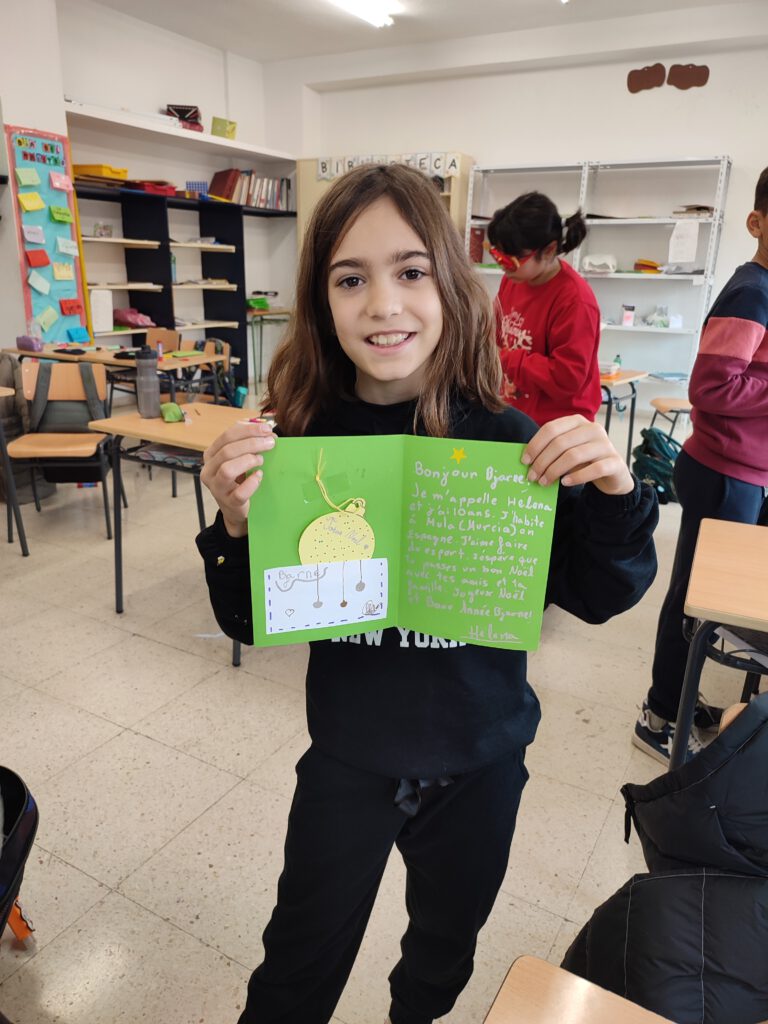 BIBLIOTECA
Bonjour Bjarne!
Je m'appelle Helena
et j'ai 10 ans. J'habite
à Mula (Murcia) en
Espagne. J'aime faire
du esport. J'éspère que
tu passes un bon Noël
avec tes amis et ta
famille. Joyeux Noël
et Bonr Année Bjarne!
Helena
Noël!
Bjarne
NEW YORK